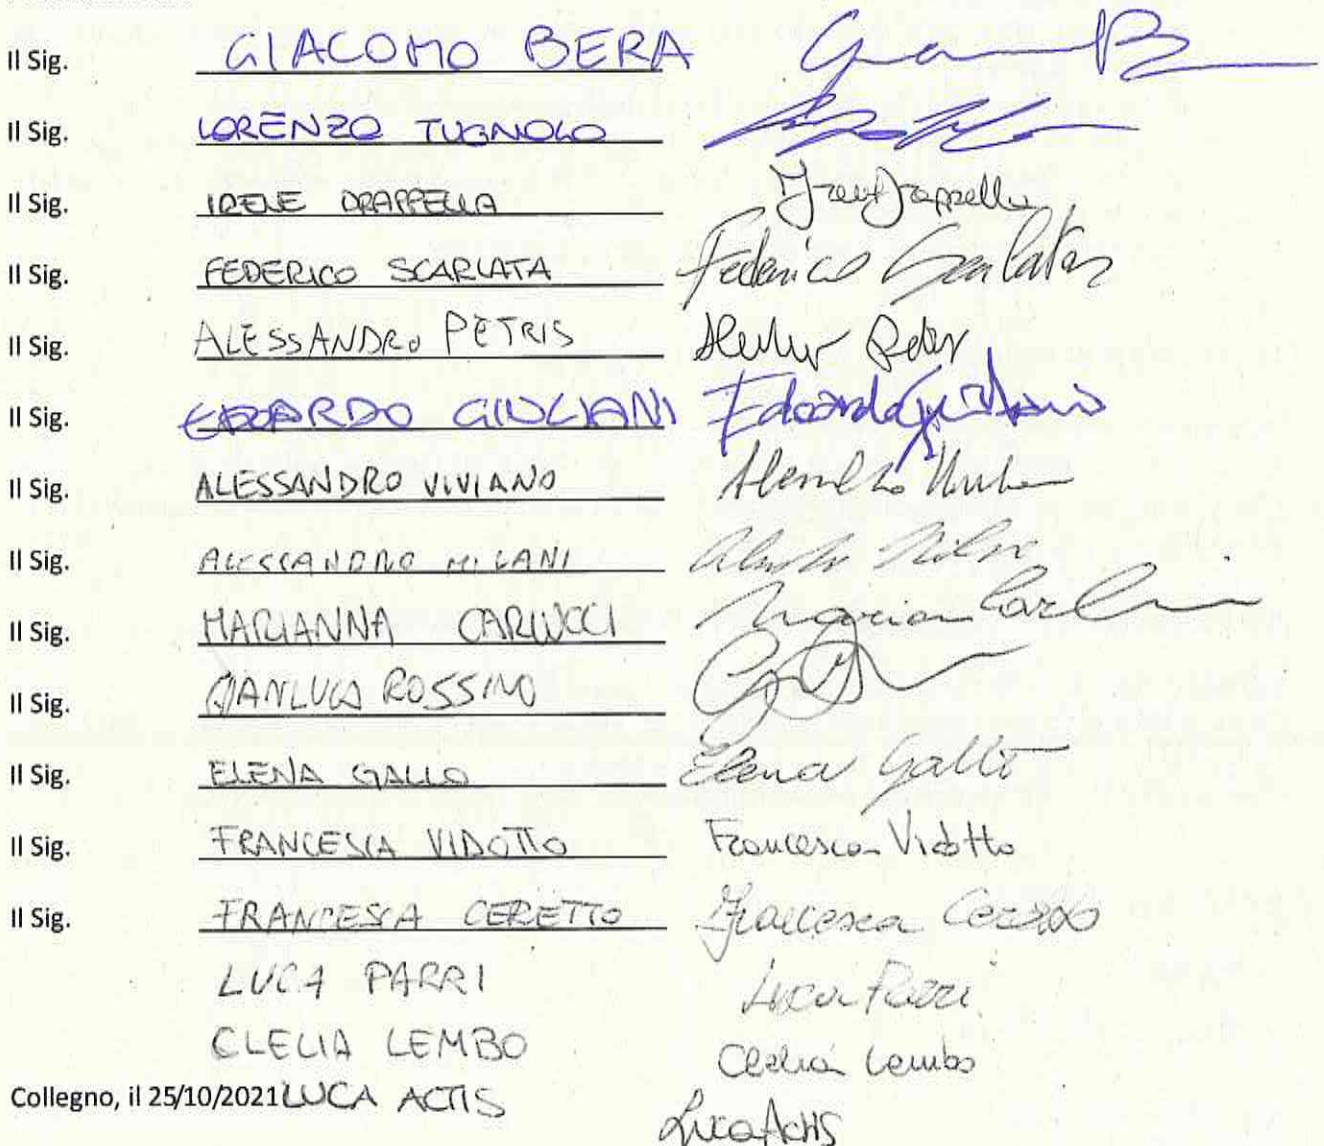 Il Sig. GIACOMO BERA
Il Sig. LORENZO TUGNOLO
Il Sig. IRENE DRAPPELLA
Il Sig. FEDERICO SCARLATA Federico Scarlata
Il Sig. ALESSANDRO PETRIS
Il Sig. EDOARDO GIULIANI Edoardo Giuliani
Il Sig. ALESSANDRO VIVIANO
Il Sig. ALESSANDRO MILANI
Il Sig. MARIANNA CARLUCCI
Il Sig. GIANLUCA ROSSINO
Il Sig. ELENA GALLO Elena Gallo
Il Sig. FRANCESCA VIDOTTO Francesca Vidotto
Il Sig. FRANCESCA CERETTO Francesca Ceretto
LUCA PARRI Luca Parri
CLELIA LEMBO Clelia Lembo
Collegno, il 25/10/2021 LUCA ACTIS Luca Actis